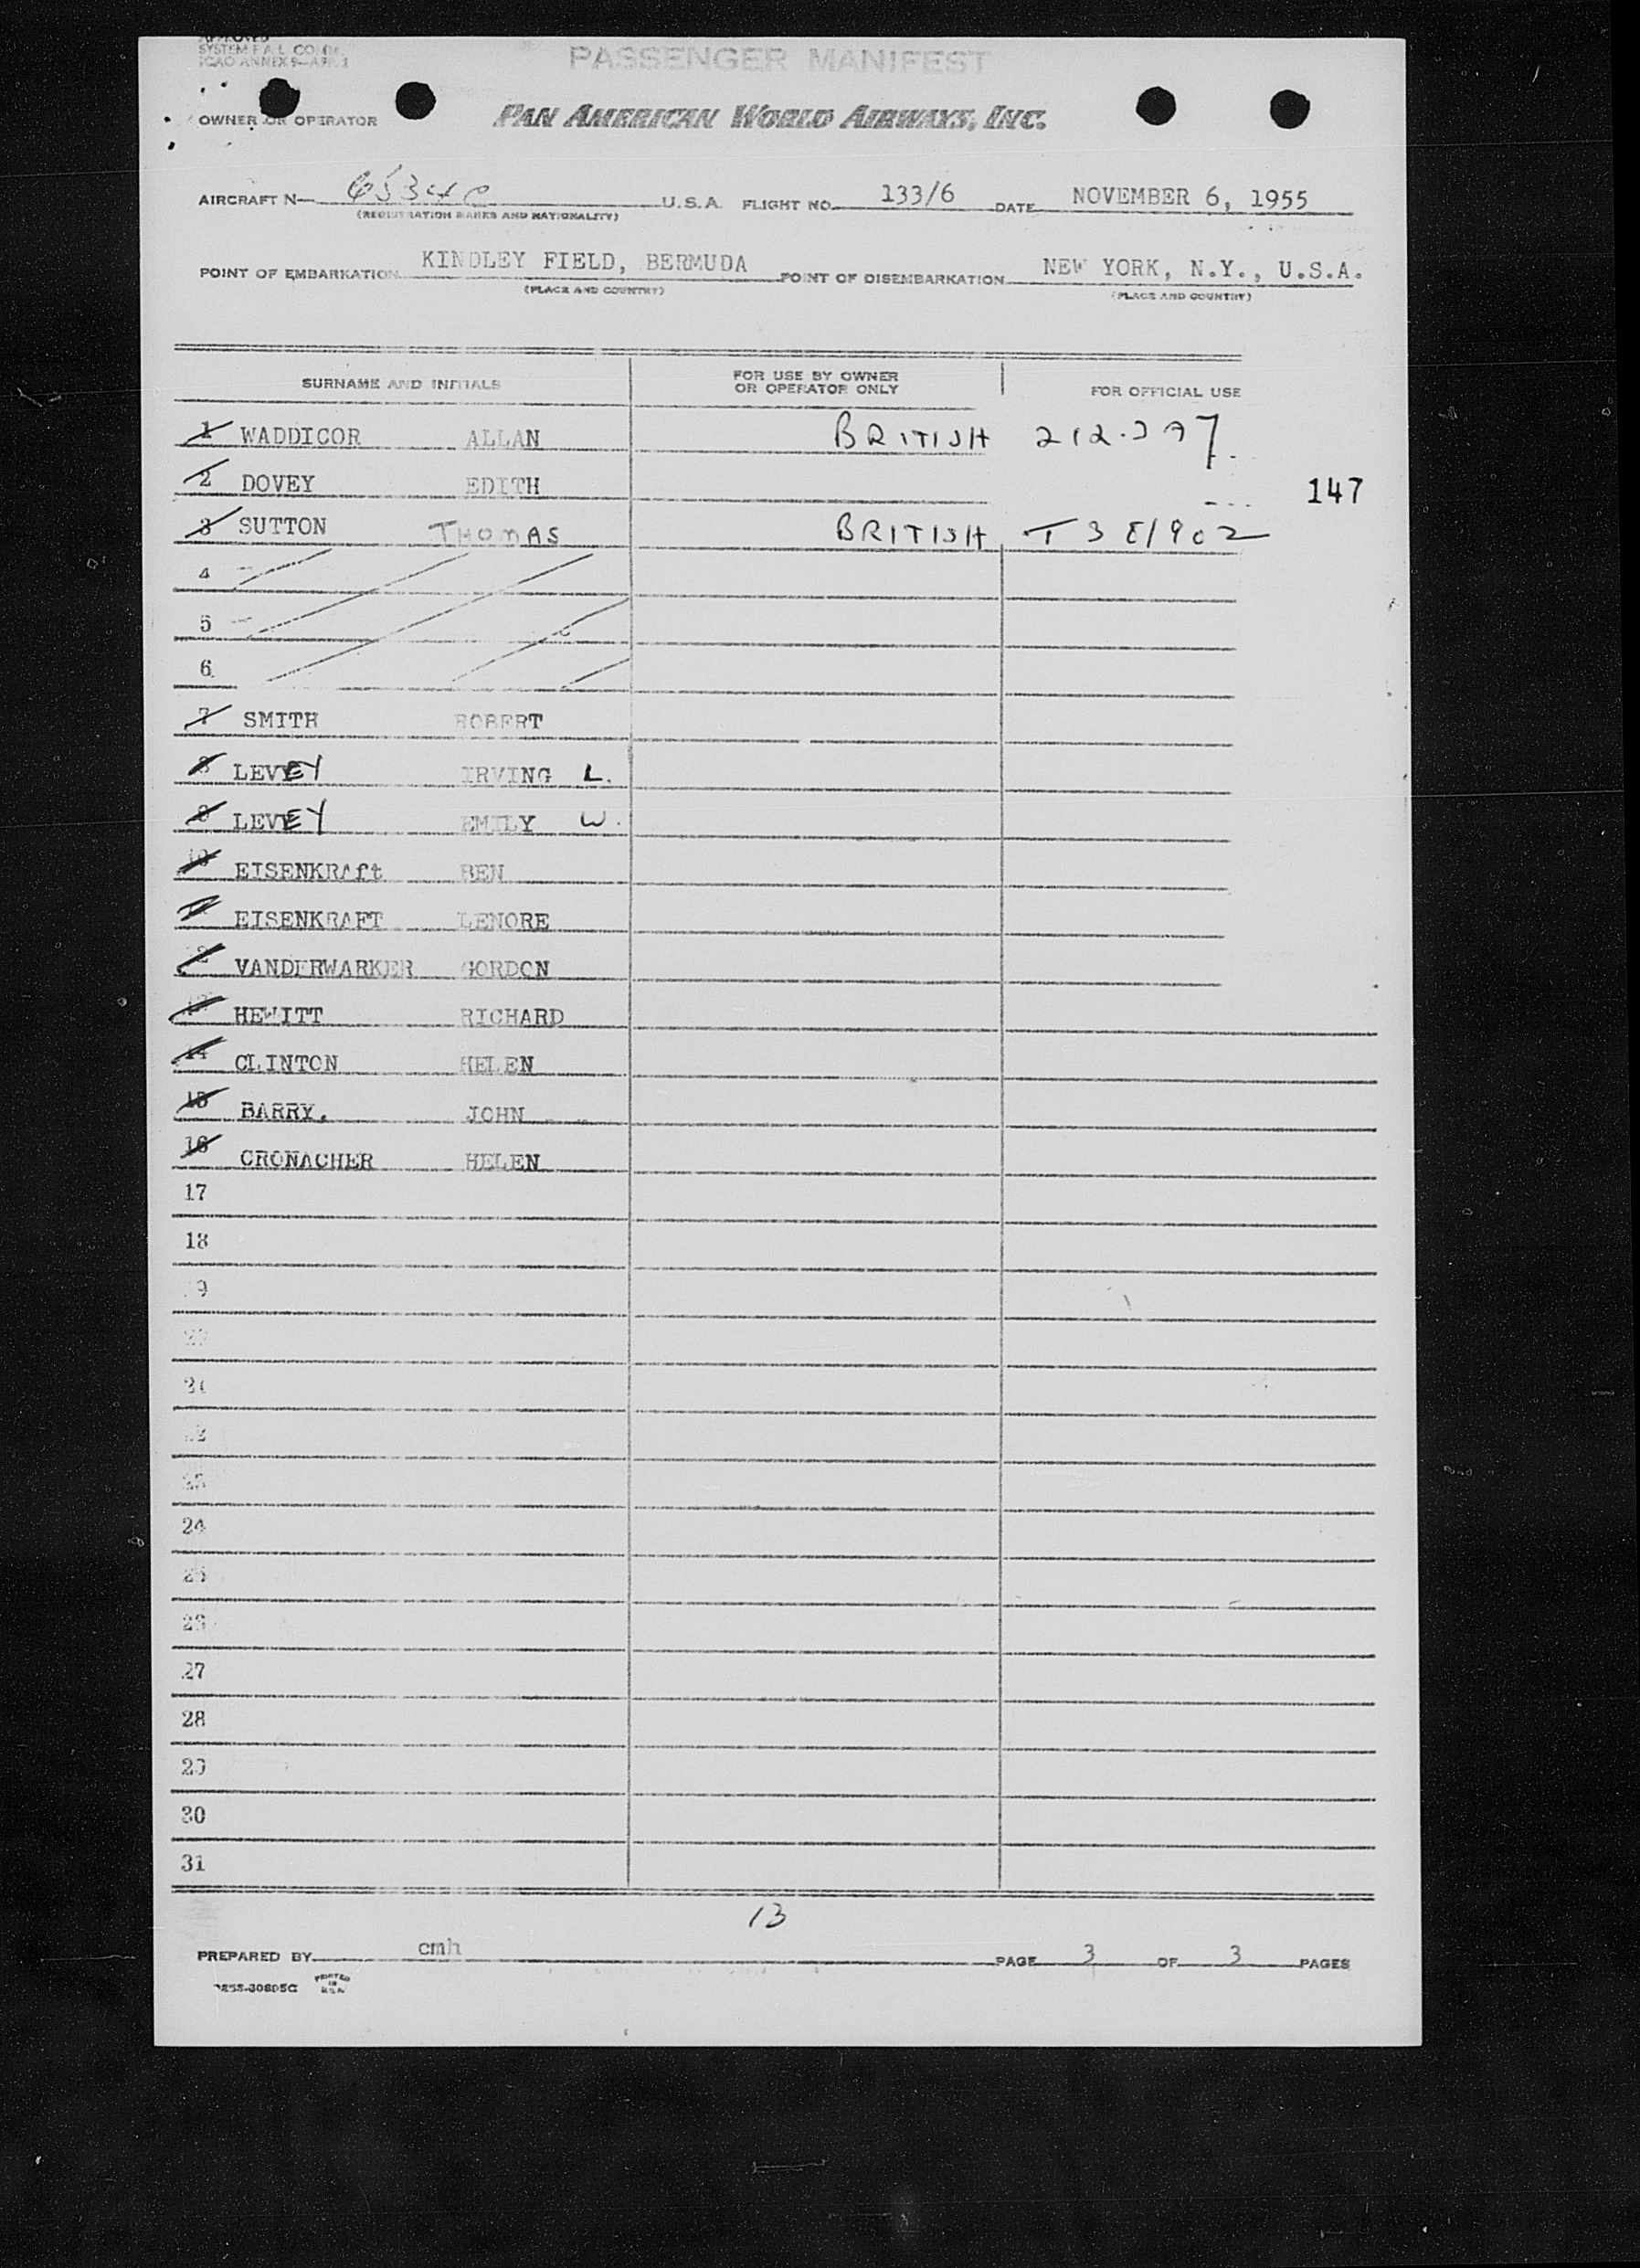 APPROVED
SYSTEM F.A.L. COMM.
ICAO ANNEX 9—APP. 1
PASSENGER MANIFEST
OWNER OR OPERATOR PAN AMERICAN WORLD AIRWAYS, INC.
AIRCRAFT N— 6534C U.S.A. FLIGHT NO. 133/6 DATE NOVEMBER 6, 1955
(REGISTRATION MARKS AND NATIONALITY)
POINT OF EMBARKATION KINDLEY FIELD, BERMUDA POINT OF DISEMBARKATION NEW YORK, N.Y., U.S.A.
(PLACE AND COUNTRY) (PLACE AND COUNTRY)
SURNAME AND INITIALS FOR USE BY OWNER OR OPERATOR ONLY FOR OFFICIAL USE
1 WADDICOR ALLAN BRITISH
2 DOVEY EDITH 147
3 SUTTON THOMAS BRITISH T381902
4
5
6
7 SMITH ROBERT
8 LEVEY IRVING L.
9 LEVEY EMILY W.
10 EISENKRAft BEN
11 EISENKRAFT LENORE
12 VANDERWARKER GORDON
13 HEWITT RICHARD
14 CLINTON HELEN
15 BARRY, JOHN
16 CRONACHER HELEN
17
18
19
20
21
22
23
24
25
26
27
28
29
30
31
13
PREPARED BY cmh PAGE 3 OF 3 PAGES
PRINTED IN U.S.A.